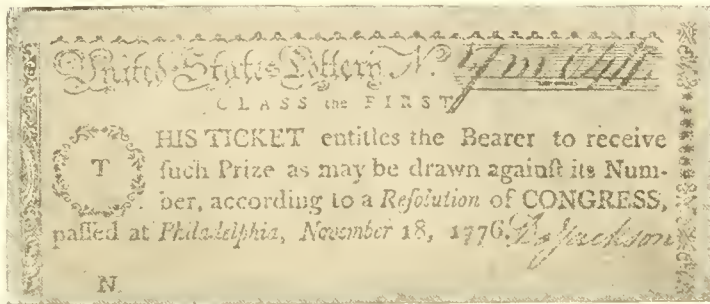 United States Lottery No.
CLASS the FIRST
THIS TICKET entitles the Bearer to receive
ſuch Prize as may be drawn againſt its Num-
ber, according to a Reſolution of CONGRESS,
paſſed at Philadelphia, November 18, 1776. Jackson
N